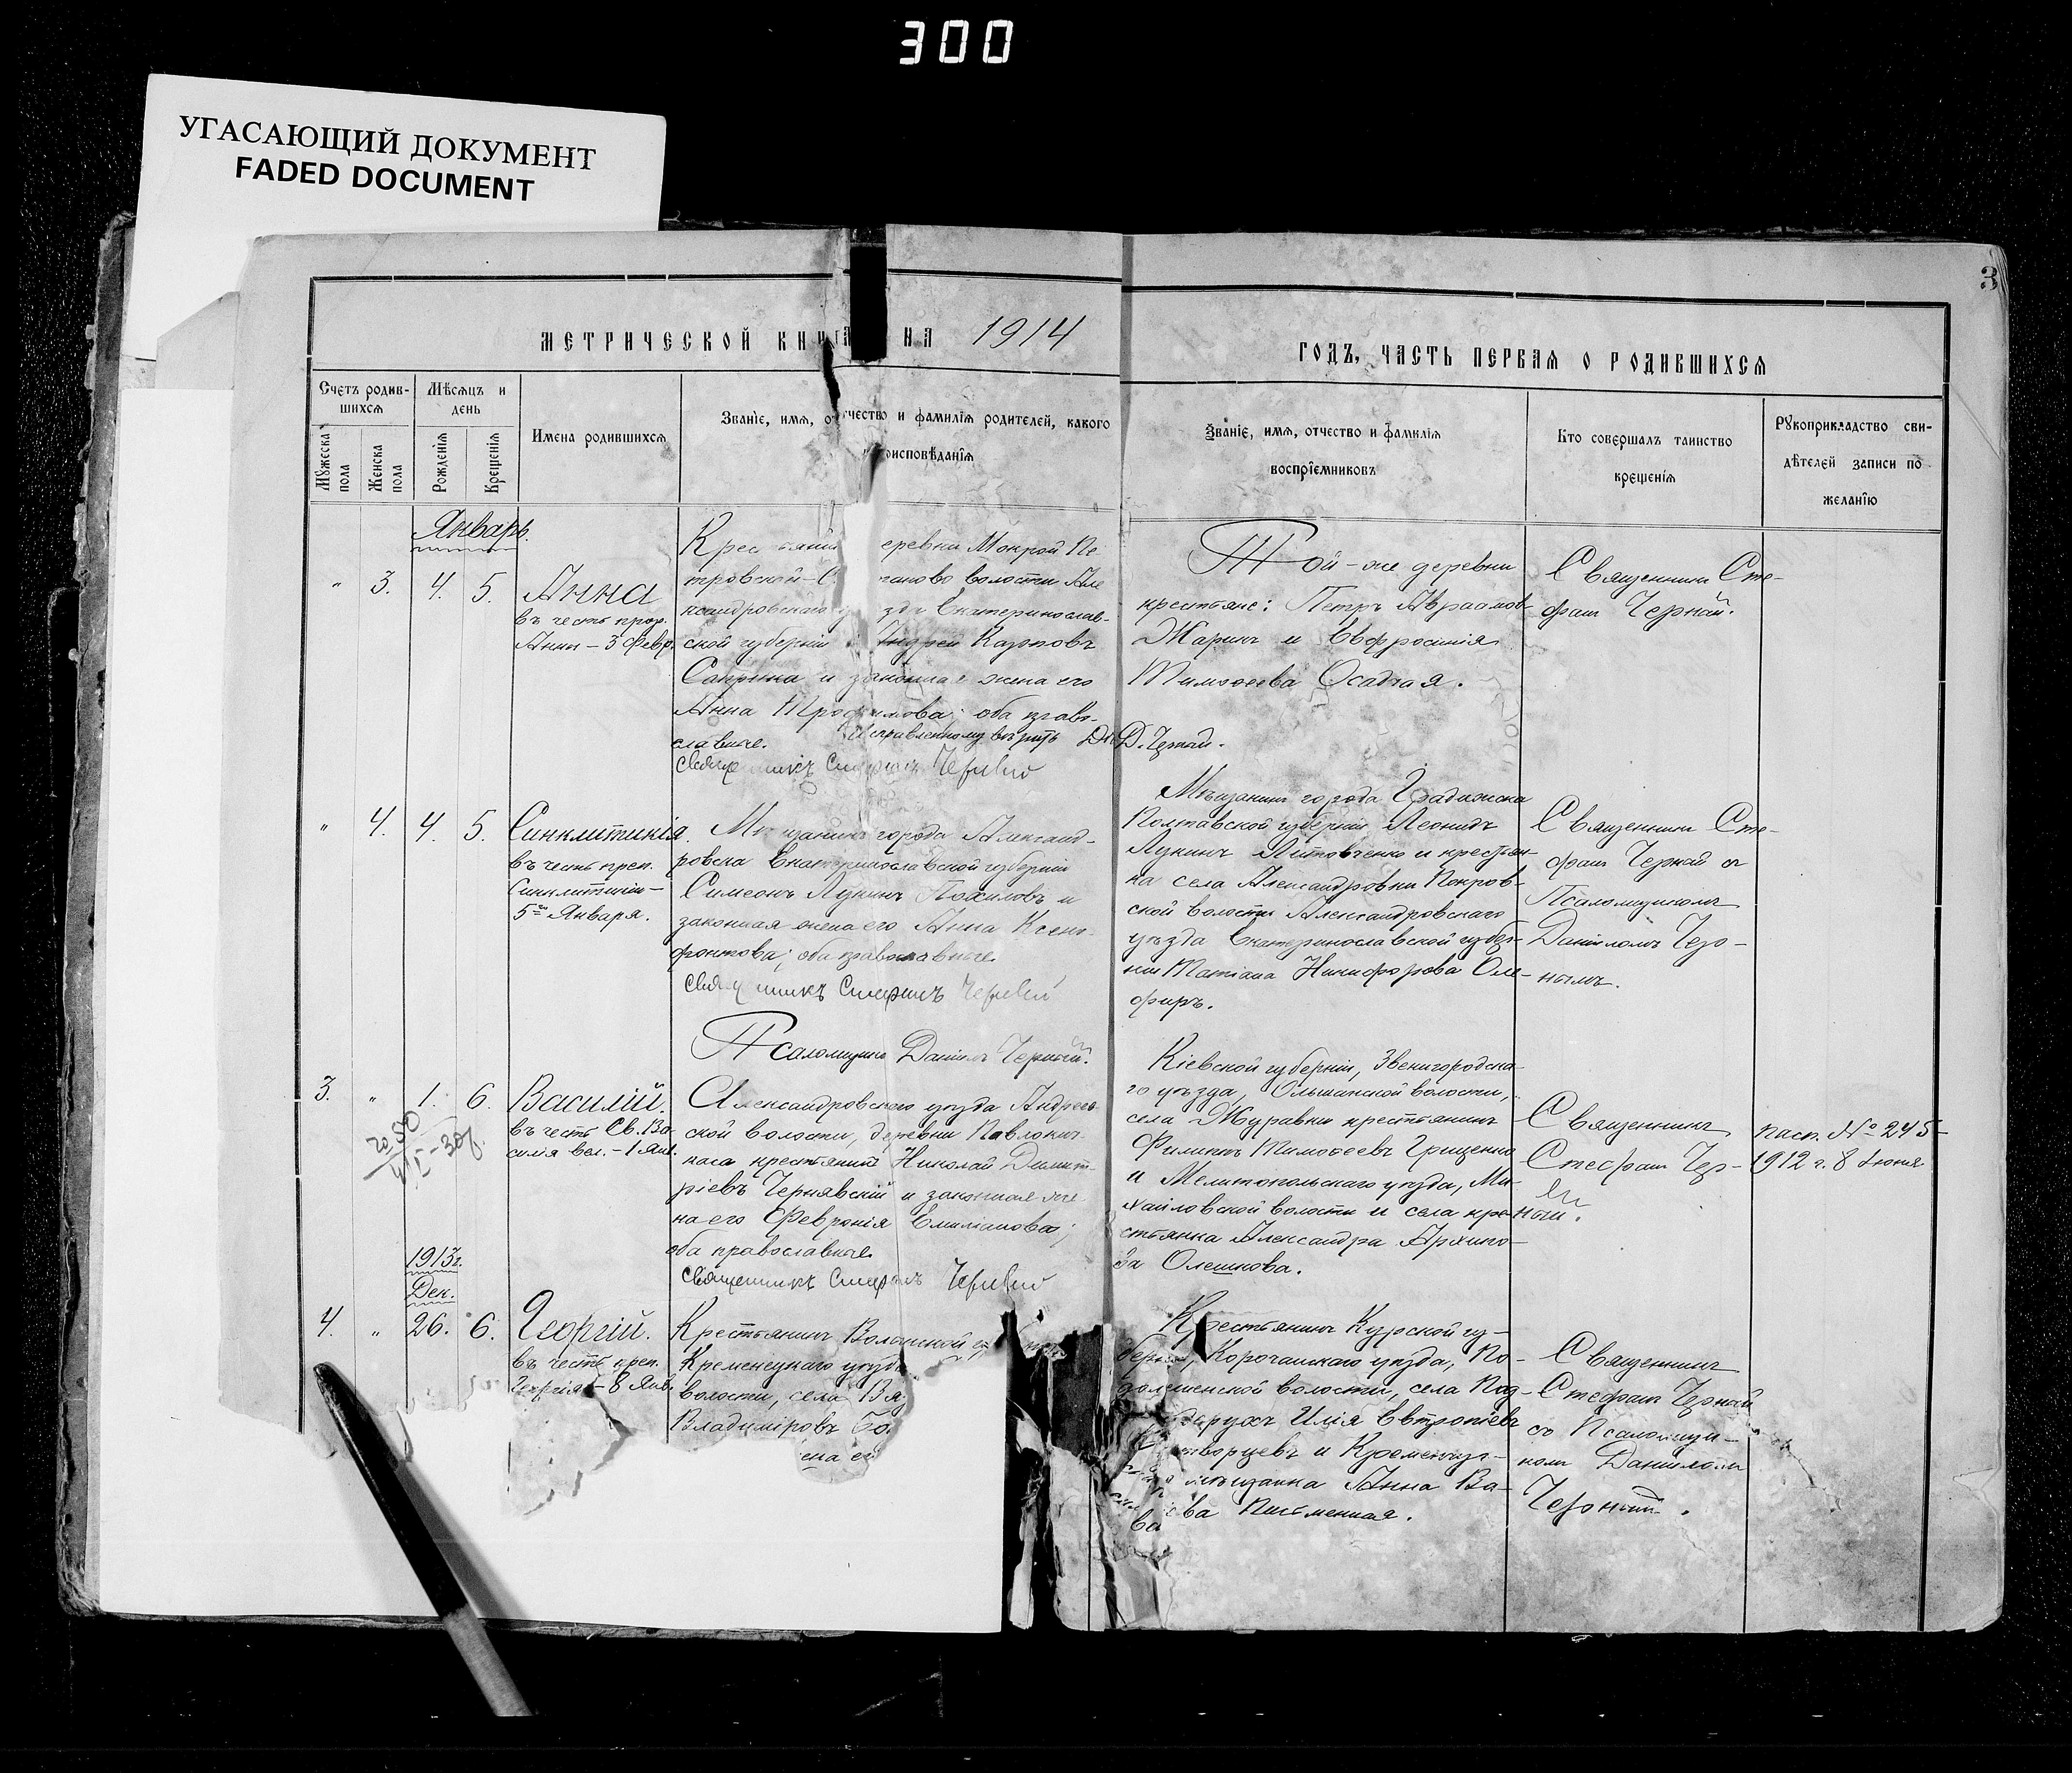 300
УГАСАЮЩИЙ ДОКУМЕНТ
FADED DOCUMENT
3
МЕТРИЧЕСКОЙ КНИГИ НА 1914
ГОДЪ, ЧАСТЬ ПЕРВАЯ О РОДИВШИХСЯ
Счетъ родив-
шихся
Мѣсяцъ и
день
Мужеска пола
Женска пола
Рожденія
Крещенія
Имена родившихся
Званіе, имя, отчество и фамилія родителей, какого
вѣроисповѣданія
Званіе, имя, отчество и фамилія
воспріемниковъ
Кто совершалъ таинство
крещенія
Рукоприкладство сви-
дѣтелей записи по
желанію
Январь.
" 3. 4. 5.
Анна
въ честь прор.
Анны – 3 Февр.
еревни Мокрой Пе
тровской
волости Але
ксандровскаго зда Екатеринослав-
ской губерніи Андрей Карповъ
и законная жена его
Анна Трофимова; оба право-
славные. Исправленному вѣрить
священникъ Стефанъ Черный
Той-же деревни
крестьяне: Петръ Авраамов
Жаринъ и Евфросинія
Тимоѳеева Осадчая.
Д. Черный.
Священникъ Сте-
фанъ Черный.
" 4. 4. 5.
Синклитикія
въ честь преп.
Синклитикіи –
5го Января.
Мѣщанинъ города Александ-
ровска Екатеринославской губерніи
Симеонъ Лукинъ Похиловъ и
законная жена его Анна Ксено-
фонтова; оба православные.
Священникъ Стефанъ Черный
Псаломщикъ Даніилъ Черный.
Мѣщанинъ города Градижска
Полтавской губерніи Леонидъ
Лукинъ Литовченко и крестьян-
ка села Александровки Покров-
ской волости Александровскаго
уѣзда Екатеринославской губер-
ніи Татіана Никифорова Оле-
фиръ.
Священникъ Сте-
фанъ Черный съ
Псаломщикомъ
Даніиломъ Чер-
нымъ.
3. " 1. 6.
Василій.
въ честь Св. Ва-
силія вел. – 1 Янв.
Александровскаго уѣзда Андреев-
ской волости, деревни Павлокич-
каса крестьянинъ Николай Димит-
ріевъ Чернявскій и законная же-
на его Февронія Емиліанова;
оба православные.
Священникъ Стефанъ Черный
Кіевской губерніи, Звенигородска-
го уѣзда, Ольшанской волости,
села Журавки крестьянинъ
Филиппъ Тимоѳеевъ Грищенко
и Мелитопольскаго уѣзда, Ми-
хайловской волости и села кре-
стьянка Александра Архипо-
ва Олешкова.
Священникъ
Стефанъ Чер-
ный.
пасп. № 245
1912 г. 8 Іюня
1913г.
Дек.
4. " 26. 6.
Георгій.
въ честь преп.
Георгія – 8 Янв.
Крестьянинъ Волынской
Кременецкаго уѣзда
волости, села
Владиміровъ
ена ег
Крестьянинъ Курской гу-
берніи, Корочанскаго уѣзда,
волости, села
Илія Евтропіевъ
и Кременчуг-
мѣщанка Анна Ва-
ва Письменная.
Священникъ
Стефанъ Черный
съ Псаломщи-
комъ Даніиломъ
Чернымъ.